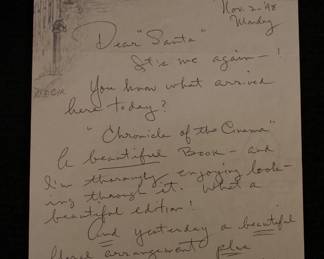 Nov. 2-'98
Monday
Dear "Santa"
It's me again—!
You know what arrived
here today?
"Chronicle of the Cinema"
A beautiful Book — and
I'm thoroughly enjoying look-
ing through it. What a
beautiful edition!
And yesterday a beautiful
floral arrangement plus